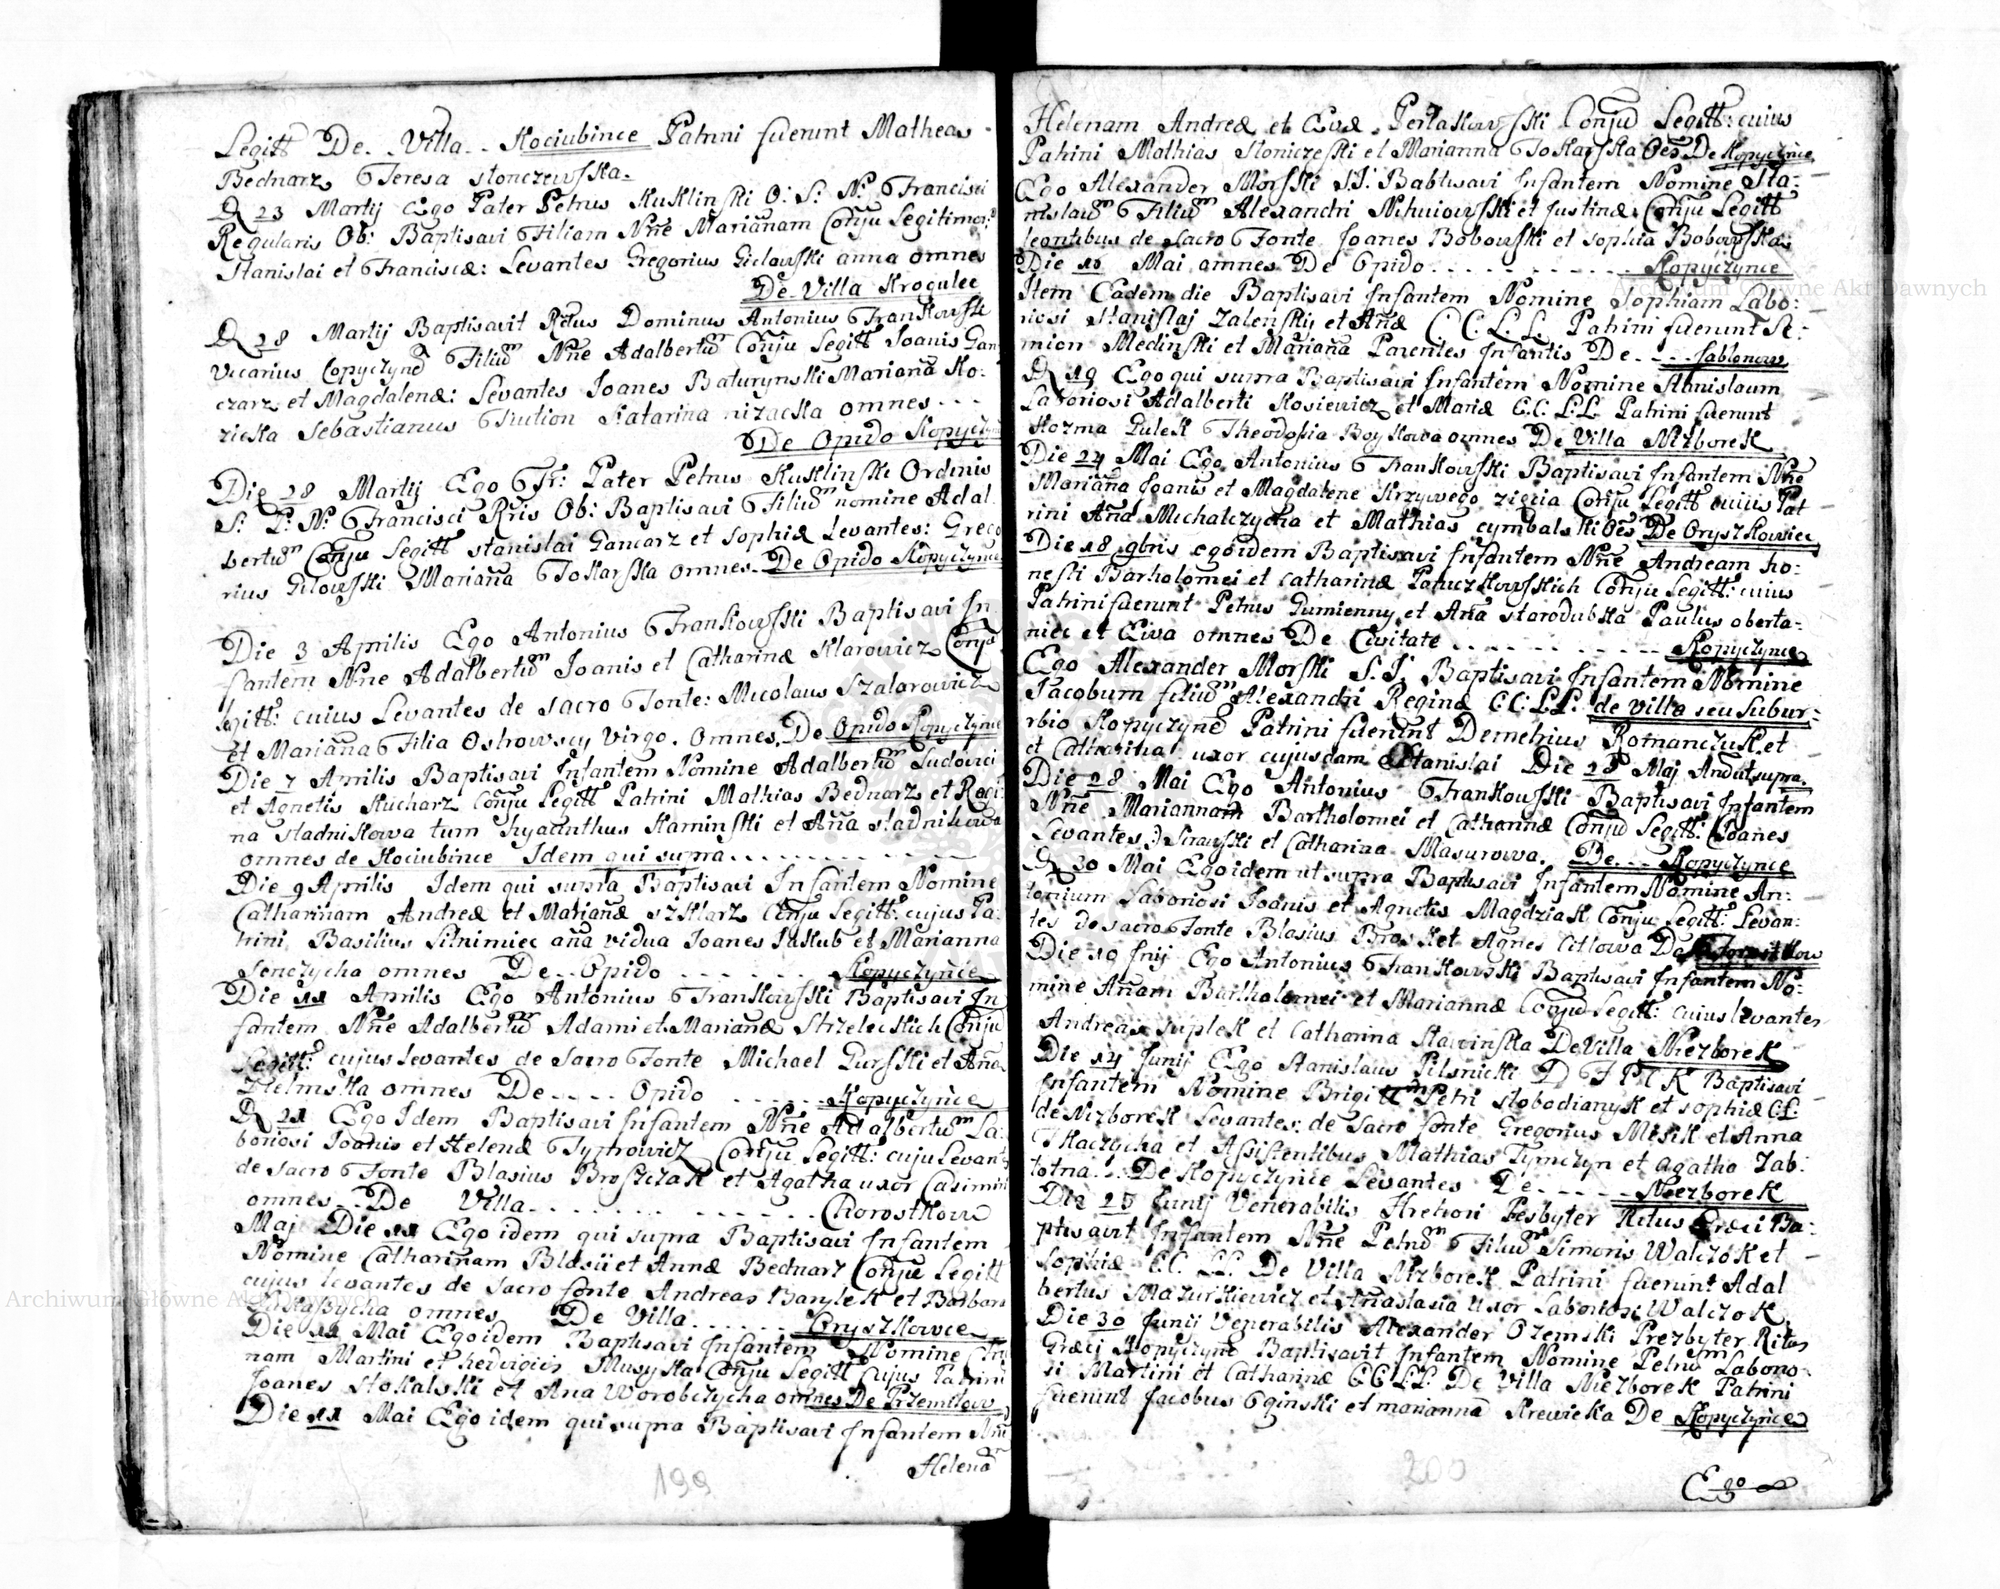 Legitt De - Villa - Kociubince Patrini fuerunt Matheas
Bednarz Teresa Stonczewska
D 23 Martij Ego Pater Petrus Kuklinski O: S: N: Francisci
Regularis Ob: Baptisavi Filiam Nñe Mariañam Conju Legitimor:
Stanislai et Franciscæ: Levantes Gregorius Gielowski anna omnes
De Villa Krogulec
D 28 Martij Baptisavit Rdus Dominus Antonius Frankowski
Vicarius Copyczyne Filiũ Nñe Adalbertũ Conju Legitt Joanis Gan
czarz et Magdalenæ: Levantes Joanes Baturynski Mariaña Ko:
zicka Sebastianus Katarina nizacka omnes
De Opido Kopyczyn
Die 28 Martij Ego Fr: Pater Petrus Kuklinski Ordinis
S: P: N: Francisci Rris Ob: Baptisavi Filiũ nomine Adal
bertũ Conju Legitt Stanislai Gancarz et Sophiæ Levantes: Grego
rius Gilowski Mariaña Tokarska omnes De Opido Kopyczynce
Die 3 Aprilis Ego Antonius Frankowski Baptisavi In
fantem Nñe Adalbertũ Joanis et Catharinæ Klarowicz Conju
legitt: cuius Levantes de Sacro Fonte: Nicolaus Szalarowicz
et Mariaña Filia Ostrowscy Virgo. Omnes De Opido Kopyczynce
Die 7 Aprilis Baptisavi Infantem Nomine Adalbertũ Ludovici
et Agnetis Kucharz Conju Legitt Patrini Mathias Bednarz et Regi
na Stadnikowa tum Hyacinthus Kaminski et Aña Stadnikowa
omnes de Kociubince Idem qui supra
Die 9 Aprilis Idem qui supra Baptisavi Infantem Nomine
Catharinam Andreæ et Marianæ Szklarz Conju Legitt: cujus Pa:
trini Basilius Silnimiec aña vidua Joanes Jakub et Marianna
Senczycha omnes De Opido Kopyczynce
Die 11 Aprilis Ego Antonius Frankowski Baptisavi In
fantem Nñe Adalbertũ Adami et Marianæ Strzeleckich Conju
Legitt: cujus levantes de Sacro Fonte Michael Gurski et Aña
Helmska omnes De Opido Kopyczynce
D 21 Ego Idem Baptisavi Infantem Nñe Adalbertũ La:
boriosi Joanis et Helenæ Conju Legitt: cuju Levant
de Sacro Fonte Blasius Broszczak et Agatha uxor Casimiri
omnes De Villa Chorostkow
Maj Die 11 Ego idem qui supra Baptisavi Infantem
Nomine Catharinam Blasii et Annæ Bednarz Conju Legitt
cujus levantes de Sacro fonte Andreas Barylek et Barbara
omnes De Villa Oryszkowce
Die 11 Mai Ego idem Baptisavi Infantem Nomine
nam Martini et hedvigis Musyka Conju Legitt Cujus Patrini
Joanes Stokalski et Ana Worobczycha omnes De Przemilow
Die 11 Mai Ego idem qui supra Baptisavi Infantem Nñe
Helenã
199
Helenam Andreæ et Evæ Perlakowski Conju Legitt: cuius
Patrini Mathias Sloniczeski et Marianna Tokarska Oes De Kopyczynce
Ego Alexander Morski S.I. Babtisavi Infantem Nomine Sta:
nislaũ Filiũ Alexandri Nihuiowski et Justinæ Conju Legitt
leantibus de Sacro Fonte Joanes Bobowski et Sophia Bobowska
Die 16 Mai omnes De Opido Kopyczynce
Item Eadem die Baptisavi Infantem Nomine Sophiam Labo:
riosi Stanislaj Zalenskij et Añæ C.C.L.L. Patrini fuerunt Se:
mion Medinski et Mariaña Parentes Infantis De Jablonow
D 19 Ego qui supra Baptisavi Infantem Nomine Stanislaum
Laboriosi Adalberti Kosiewicz et Mariæ C.C. L.L. Patrini fuerunt
Kozma Gulek Theodosia Boykowa omnes De Villa Nizborek
Die 24 Mai Ego Antonius Frankowski Baptisavi Infantem Nñe
Mariaña Joanis et Magdalene Krzywego zigcia Conju Legitt cuius Pat
rini Aña Michalczycha et Mathias cymbalski Oes De Oryszkowiec
Die 18 9bris ego idem Baptisavi Infantem Nñe Andream ho:
nesti Bartholomei et catharinæ Paluczkowskich Conju Legitt: cuius
Patrini fuerunt Petrus Gumienny et Aña Starodubka Paulus oberta:
niec et Ewa omnes De Civitate Kopyczynce
Ego Alexander Morski S.I. Baptisavi Infantem Nomine
Jacobum filiũ Alexandri Reginæ C.C.L.L. de villa seu Subur:
rbio Kopyczyne Patrini fuerunt Demetrius Romanczuk et
et Catharina uxor cujusdam Stanislai Die 28 Maj Anõ ut supra
Die 28 Mai Ego Antonius Frankowski Baptisavi Infantem
Nñe Mariannam Bartholomei et Catharinæ Conju Legitt: (Joanes
Levantes:) Sirawski et Catharina Masurowa. De Kopyczynce
D 30 Mai Ego idem ut supra Baptisavi Infantem Nomine An:
tonium Laboriosi Joanis et Agnetis Magdziak Conju Legitt: Levan:
tes de sacro Fonte Blasius Bros et Agnes Citlowa De
Die 10 Jnij Ego Antonius Frankowski Baptisavi Infantem No:
mine Añam Bartholomei et Mariannæ Conju Legitt: cuius levantes
Andreas suplek et Catharina Slawinska De Villa Niezborek
Die 14 Junij Ego Stanislaus Pilsnicki D F P C K Baptisavi
Infantem Nomine Brigittã Petri Slobodianyk et sophiæ C.L.
de Nizborek Levantes: de Sacro fonte Gregorius Misik et Anna
Tkaczycha et Assistentibus Mathias Tymczyn et agatha Zab:
lotna De Kopyczynce Levantes De Niezborek
Die 25 Junij Venerabilis Hrehori Presbyter Ritus Græci Ba:
ptisavit Infantem Nñe Petrũ Filiũ Simonis Walczok et
Sophiæ CC. LL. De Villa Nizborek Patrini fuerunt Adal
bertus Mazurkiewicz et Anastasia Uxor Laboriosi Walczok
Die 30 Junii Venerabilis Alexander Ozemski Prezbyter Ritus
Græci Kopyczyne Baptisavit Infantem Nomine Petrũ Laborio:
si Martini et Catharinæ CC LL De Villa Niezborek Patrini
fuerunt Jacobus Oginski et marianna Krewicka De Kopyczynce
200
Ego